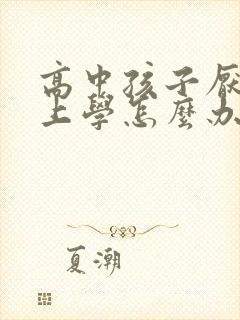 高中孩子厌
上學怎麼办
夏潮